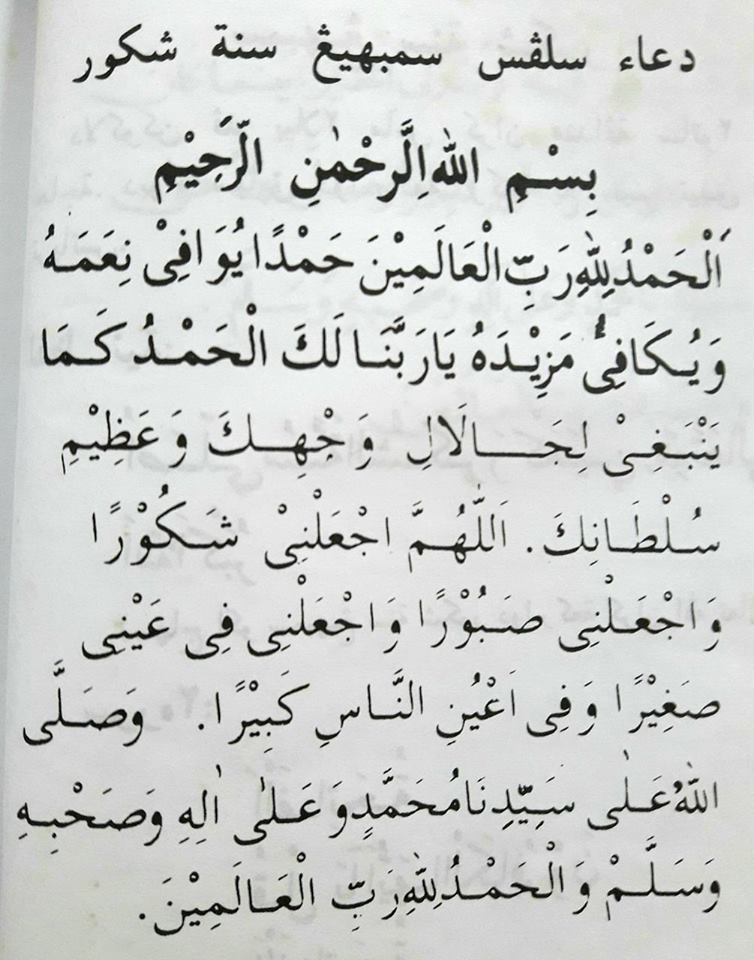 دعاء سلڤس سمبهيڠ سنة شكور
بِسْمِ اللهِ الرَّحْمٰنِ الرَّحِيْمِ
اَلْحَمْدُ لِلّٰهِ رَبِّ الْعَالَمِيْنَ حَمْدًا يُوَافِيْ نِعَمَهُ
وَيُكَافِئُ مَزِيْدَهُ يَارَبَّنَا لَكَ الْحَمْدُ كَمَا
يَنْبَغِيْ لِجَلَالِ وَجْهِكَ وَعَظِيْمِ
سُلْطَانِكَ. اَللّٰهُمَّ اجْعَلْنِيْ شَكُوْرًا
وَاجْعَلْنِي صَبُوْرًا وَاجْعَلْنِي فِي عَيْنِي
صَغِيْرًا وَفِي اَعْيُنِ النَّاسِ كَبِيْرًا. وَصَلَّى
اللهُ عَلٰى سَيِّدِنَا مُحَمَّدٍ وَعَلٰى اٰلِهِ وَصَحْبِهِ
وَسَلَّمْ وَالْحَمْدُ لِلّٰهِ رَبِّ الْعَالَمِيْنَ.